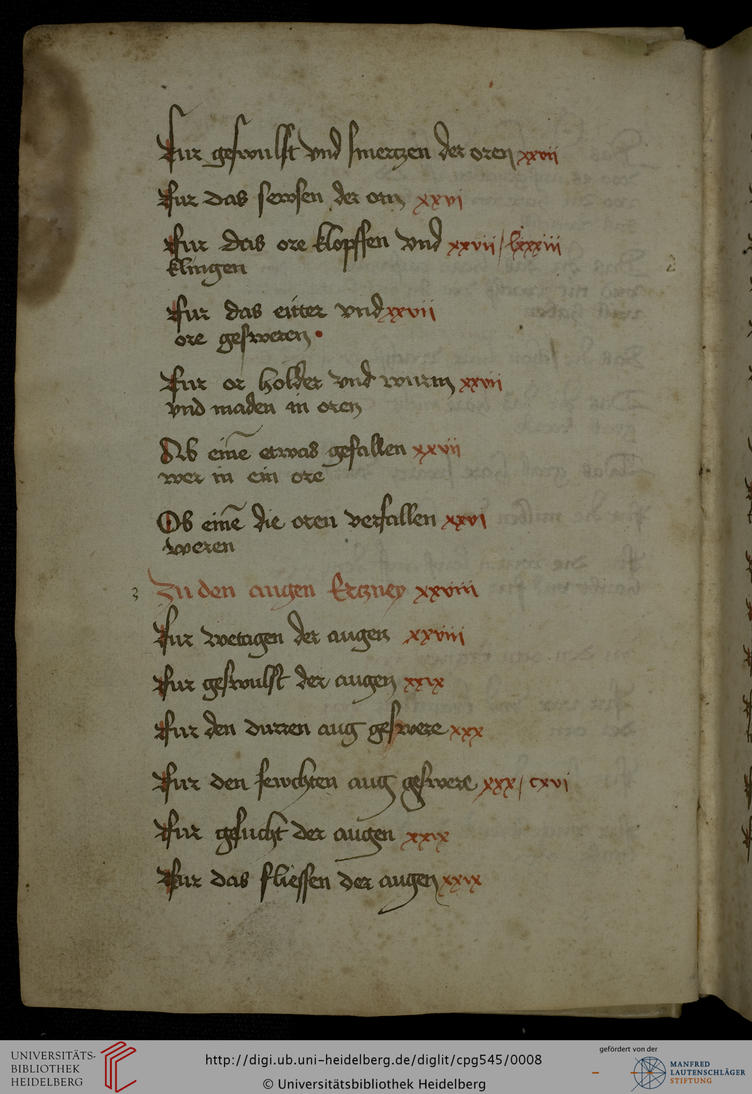 Fur geswulst vnd smerczen der oren xxvii
Fur das sewsen der orn xxvi
Fur das ore klopffen vnd xxvii / lxxxiii
klingen
Fur das eitter vnd xxvii
ore gesweren
Fur or holder vnd wurm xxvii
vnd maden in oren
Ob einē etwas gefallen xxvii
wer in ein ore
Ob einē die oren verfallen xxvi
weren
3 Zu den augen Erczney xxviii
Fur wetagen der augen xxviii
Fur geswulst der augen xxix
Fur den durren aug geswere xxx
Fur den fewchten aug geswere xxx / cxvi
Fur gesucht der augen xxix
Fur das fliessen der augen xxix
UNIVERSITÄTS-
BIBLIOTHEK
HEIDELBERG
http://digi.ub.uni-heidelberg.de/diglit/cpg545/0008
© Universitätsbibliothek Heidelberg
gefördert von der
MANFRED
LAUTENSCHLÄGER
STIFTUNG